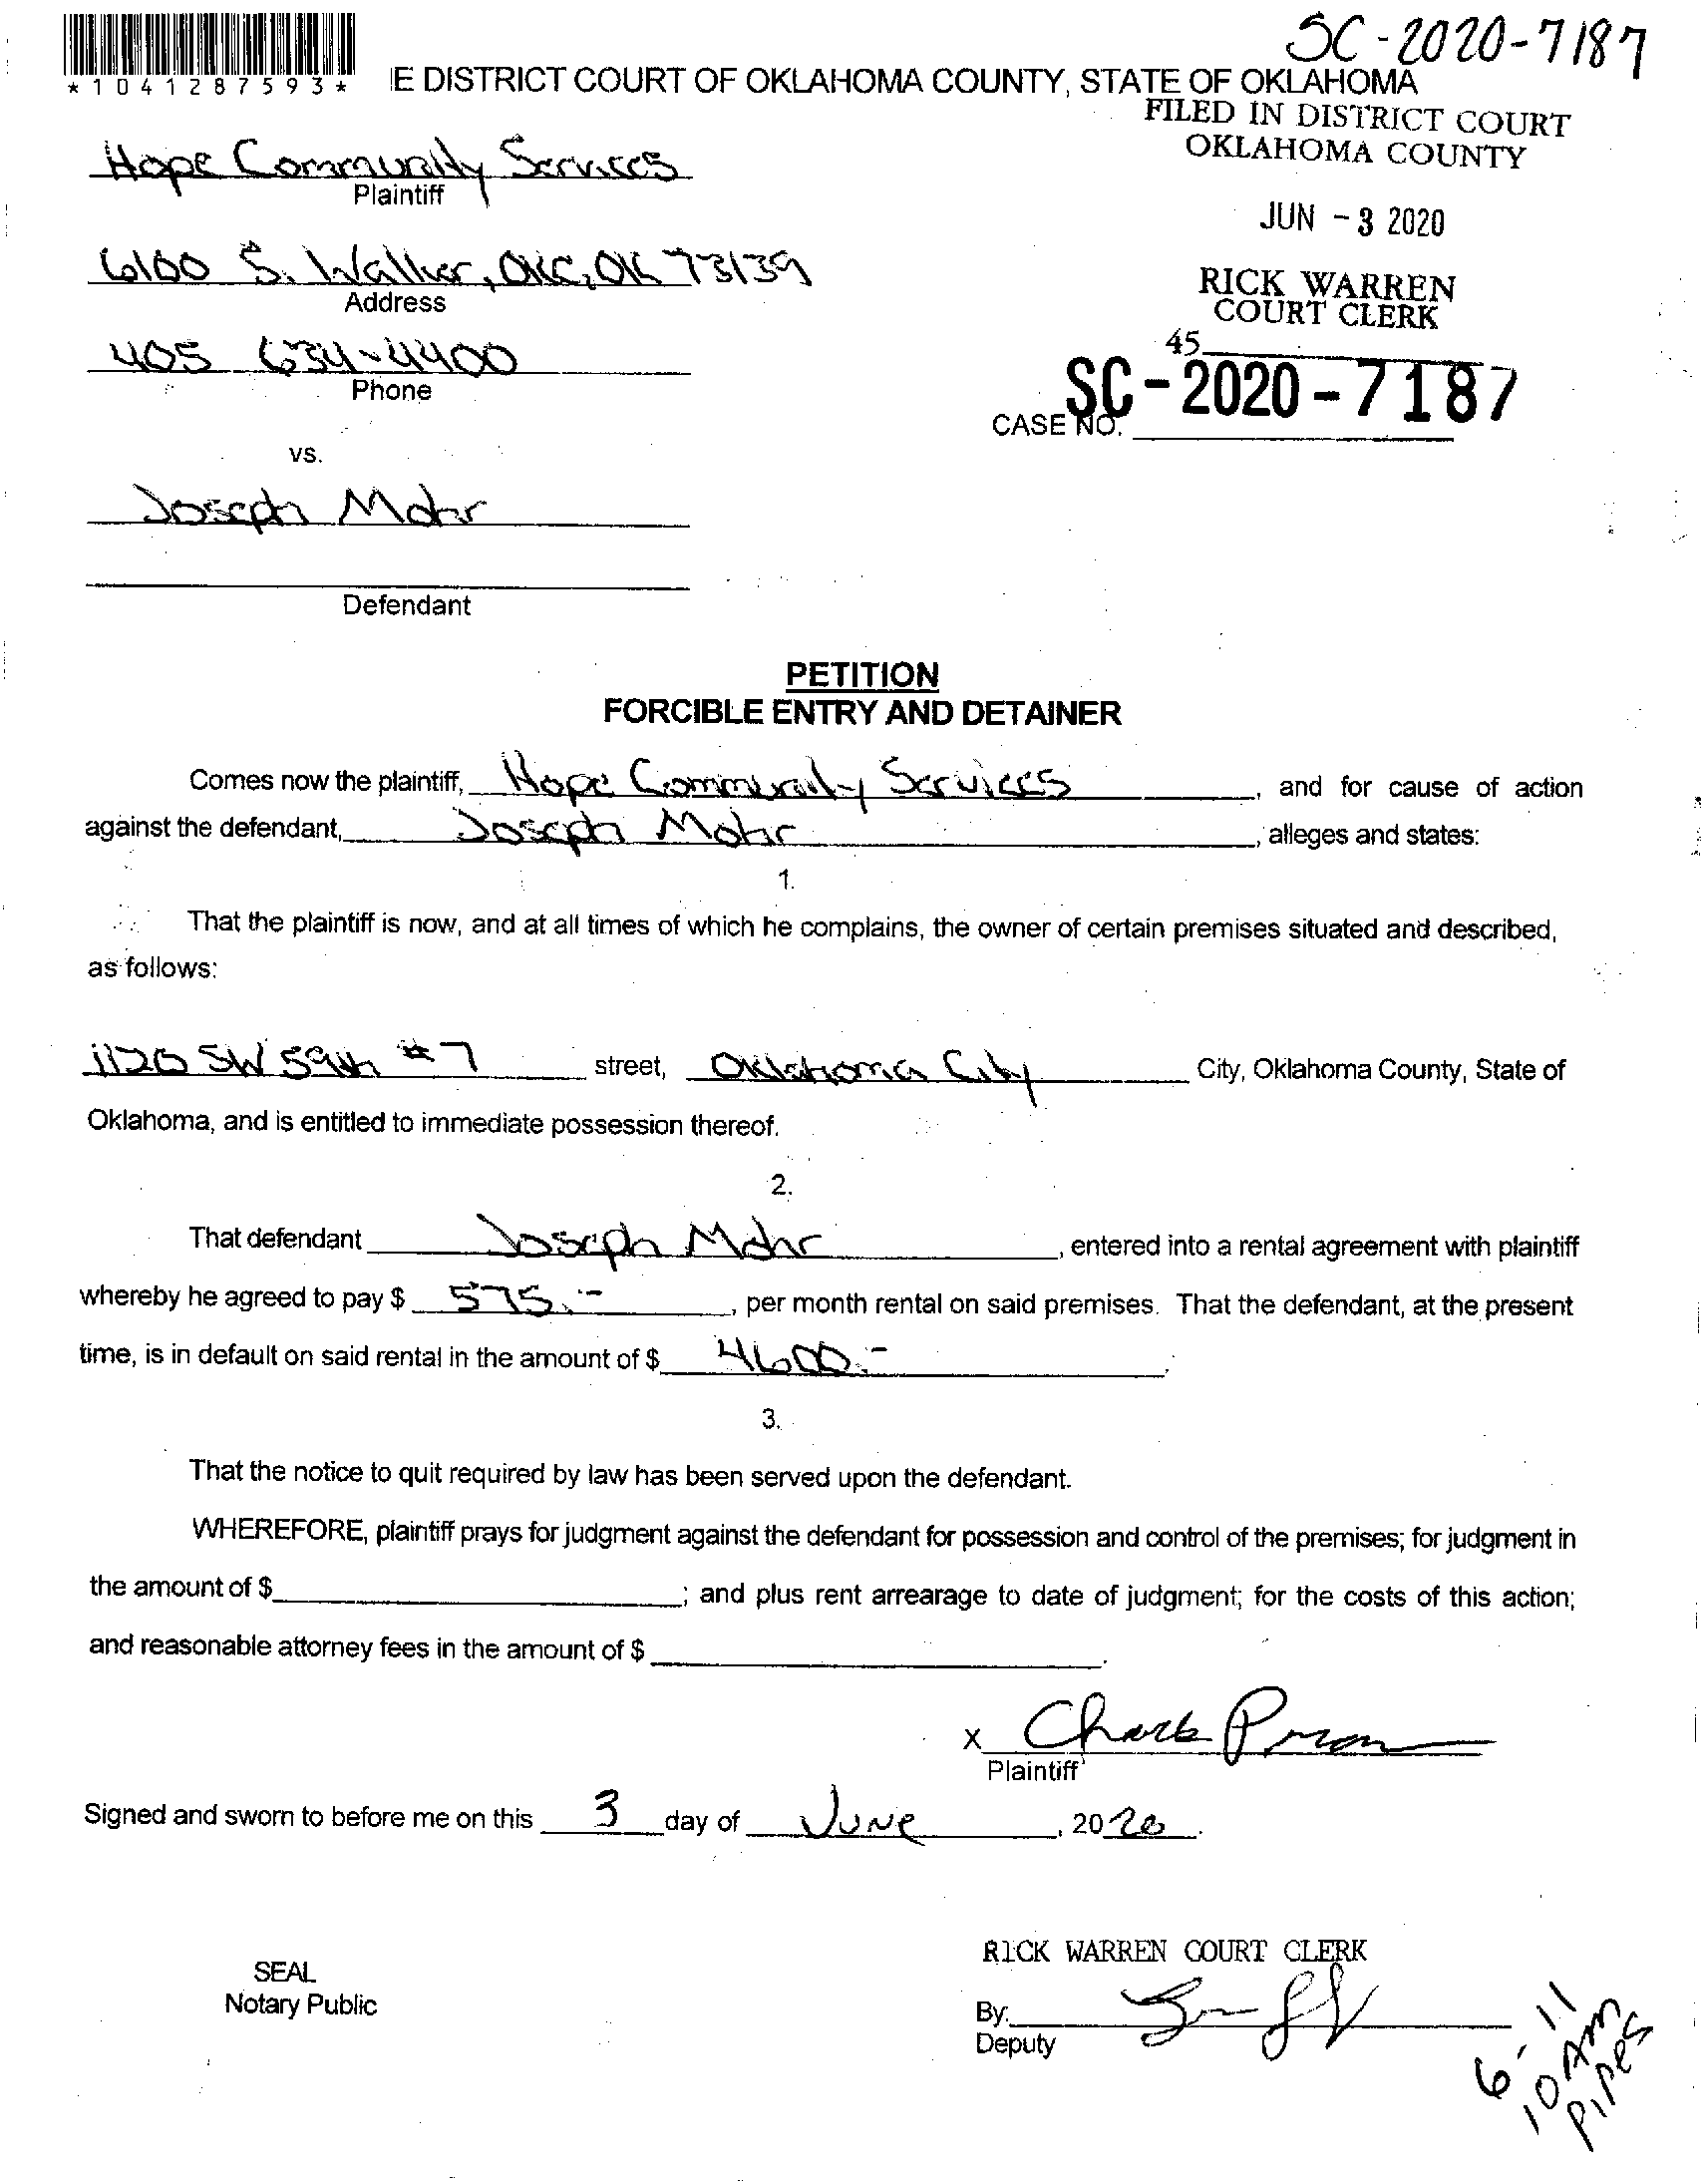 SC-2020-7187
*1041287593*
E DISTRICT COURT OF OKLAHOMA COUNTY, STATE OF OKLAHOMA
FILED IN DISTRICT COURT
OKLAHOMA COUNTY
Hope Community Services
Plaintiff
JUN - 3 2020
6100 S. Walker, OKC, OK 73139
Address
RICK WARREN
COURT CLERK
45
405 634-4400
Phone
CASE NO. SC-2020-7187
vs.
Joseph Mohr
Defendant
PETITION
FORCIBLE ENTRY AND DETAINER
Comes now the plaintiff, Hope Community Services, and for cause of action
against the defendant, Joseph Mohr, alleges and states:
1.
That the plaintiff is now, and at all times of which he complains, the owner of certain premises situated and described,
as follows:
1120 SW 59th #7 street, Oklahoma City City, Oklahoma County, State of
Oklahoma, and is entitled to immediate possession thereof.
2.
That defendant Joseph Mohr, entered into a rental agreement with plaintiff
whereby he agreed to pay $ 575.-, per month rental on said premises. That the defendant, at the present
time, is in default on said rental in the amount of $ 4600.-.
3.
That the notice to quit required by law has been served upon the defendant.
WHEREFORE, plaintiff prays for judgment against the defendant for possession and control of the premises; for judgment in
the amount of $ ; and plus rent arrearage to date of judgment; for the costs of this action;
and reasonable attorney fees in the amount of $ .
X
Plaintiff
Signed and sworn to before me on this 3 day of June, 2020.
RICK WARREN COURT CLERK
SEAL
Notary Public
By:
Deputy
6-11
10 AM
Pipes